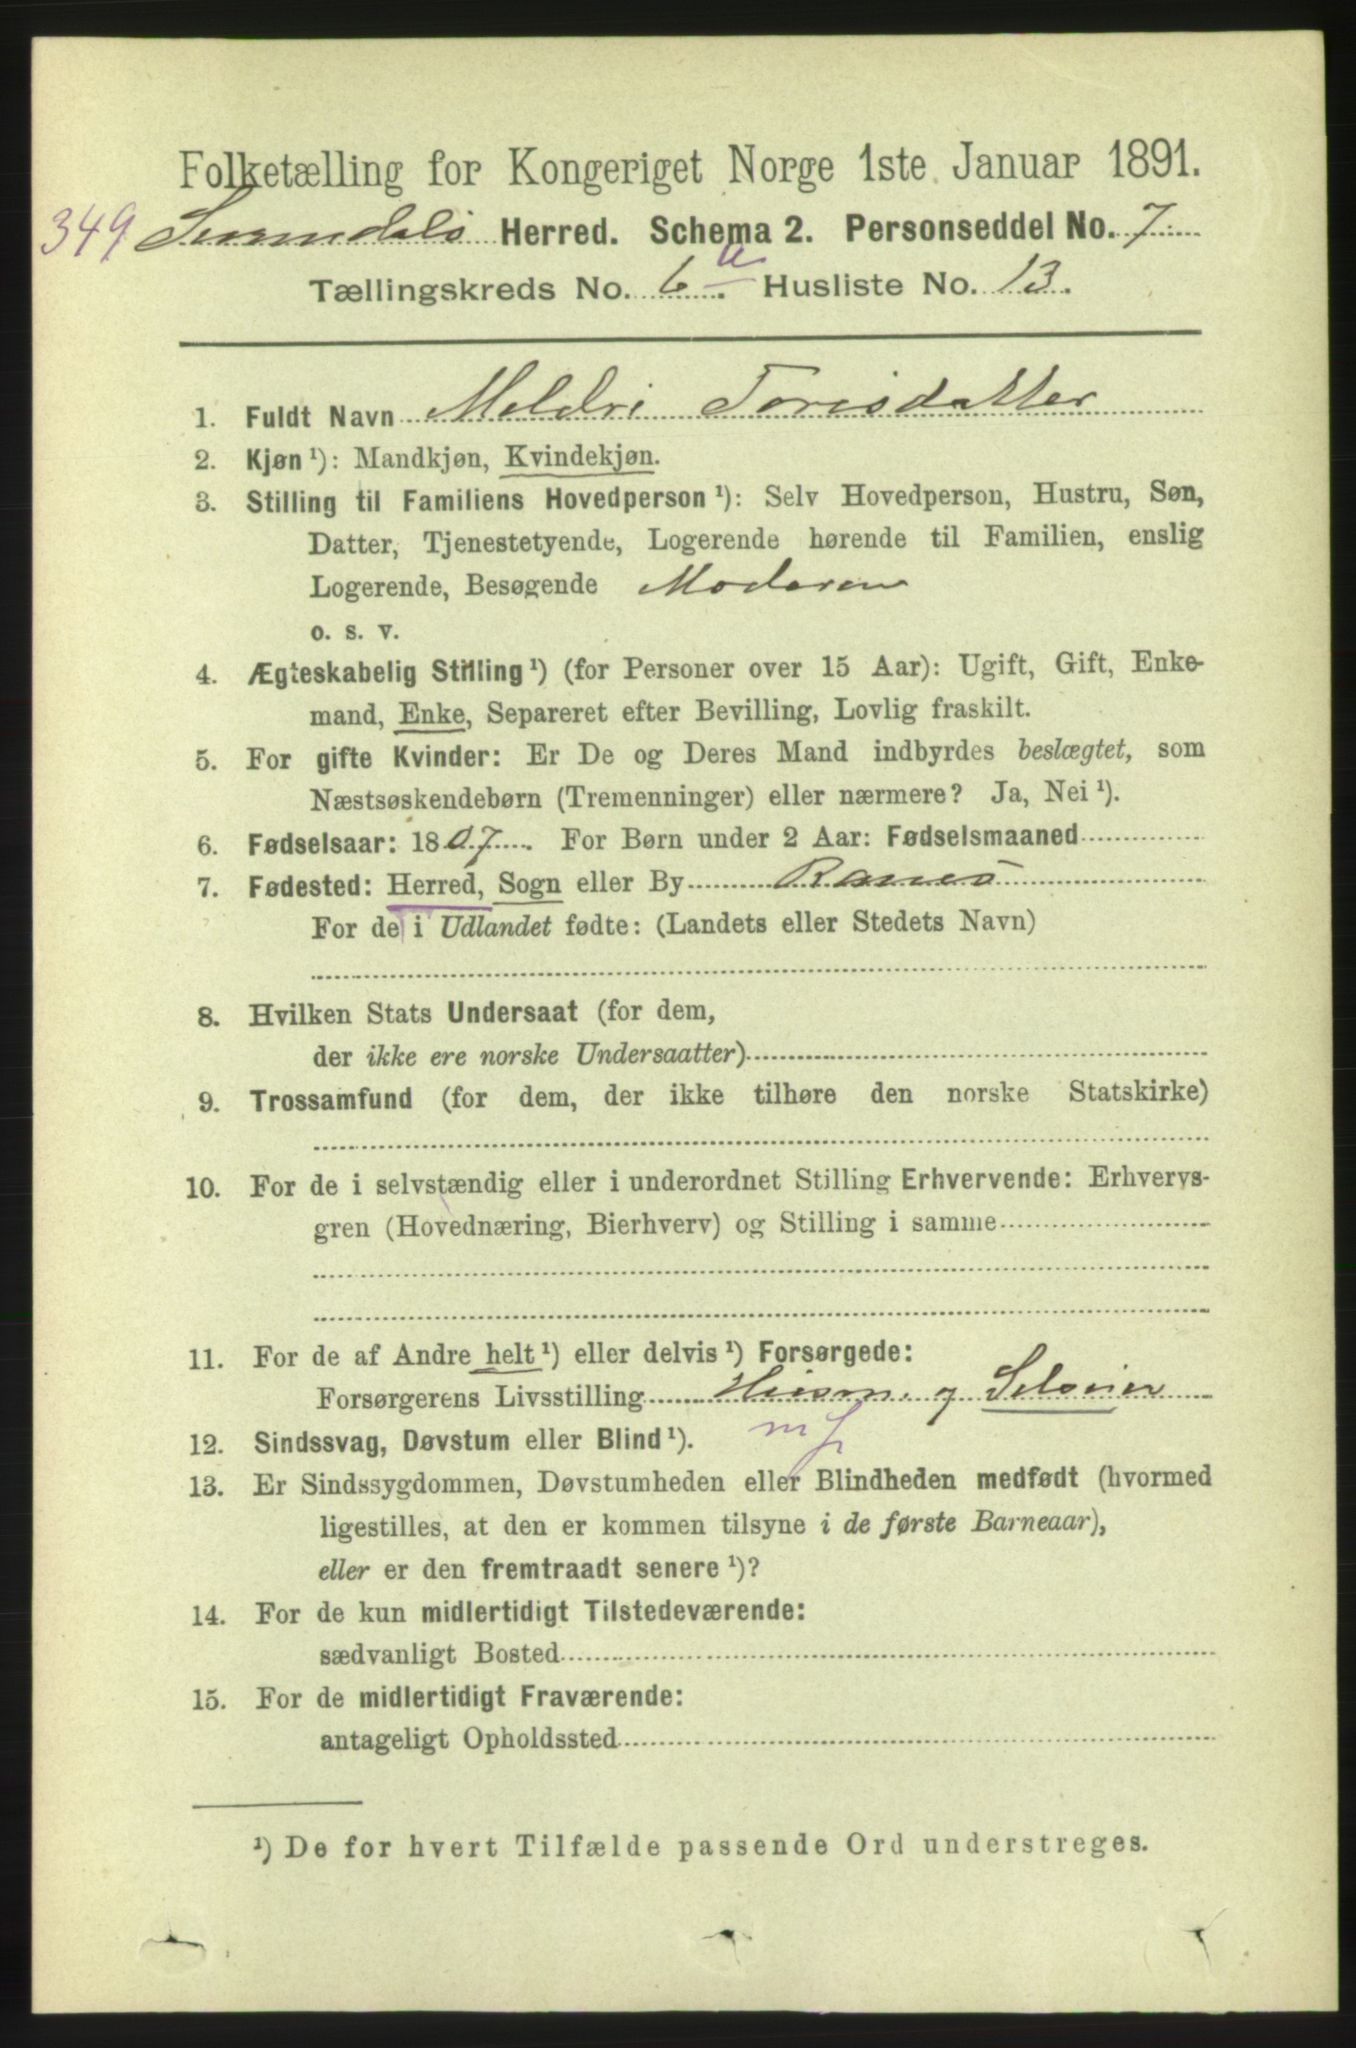 Folketælling for Kongeriget Norge 1ste Januar 1891.
349 Surendals Herred. Schema 2. Personseddel No. 7
Tællingskreds No. 6 a. Husliste No. 13.
1. Fuldt Navn Meldri Torisdatter
2. Kjøn ¹): Mandkjøn, Kvindekjøn.
3. Stilling til Familiens Hovedperson ¹): Selv Hovedperson, Hustru, Søn,
Datter, Tjenestetyende, Logerende hørende til Familien, enslig
Logerende, Besøgende Moderen
o. s. v.
4. Ægteskabelig Stilling ¹) (for Personer over 15 Aar): Ugift, Gift, Enke-
mand, Enke, Separeret efter Bevilling, Lovlig fraskilt.
5. For gifte Kvinder: Er De og Deres Mand indbyrdes beslægtet, som
Næstsøskendebørn (Tremenninger) eller nærmere? Ja, Nei ¹).
6. Fødselsaar: 1807. For Børn under 2 Aar: Fødselsmaaned
7. Fødested: Herred, Sogn eller By Ranes
For de i Udlandet fødte: (Landets eller Stedets Navn)
8. Hvilken Stats Undersaat (for dem,
der ikke ere norske Undersaatter)
9. Trossamfund (for dem, der ikke tilhøre den norske Statskirke)
10. For de i selvstændig eller i underordnet Stilling Erhvervende: Erhvervs-
gren (Hovednæring, Bierhverv) og Stilling i samme
11. For de af Andre helt ¹) eller delvis ¹) Forsørgede:
Forsørgerens Livsstilling Huusm. og Selveier
12. Sindssvag, Døvstum eller Blind ¹).
13. Er Sindssygdommen, Døvstumheden eller Blindheden medfødt (hvormed
ligestilles, at den er kommen tilsyne i de første Barneaar),
eller er den fremtraadt senere ¹)?
14. For de kun midlertidigt Tilstedeværende:
sædvanligt Bosted
15. For de midlertidigt Fraværende:
antageligt Opholdssted
¹) De for hvert Tilfælde passende Ord understreges.